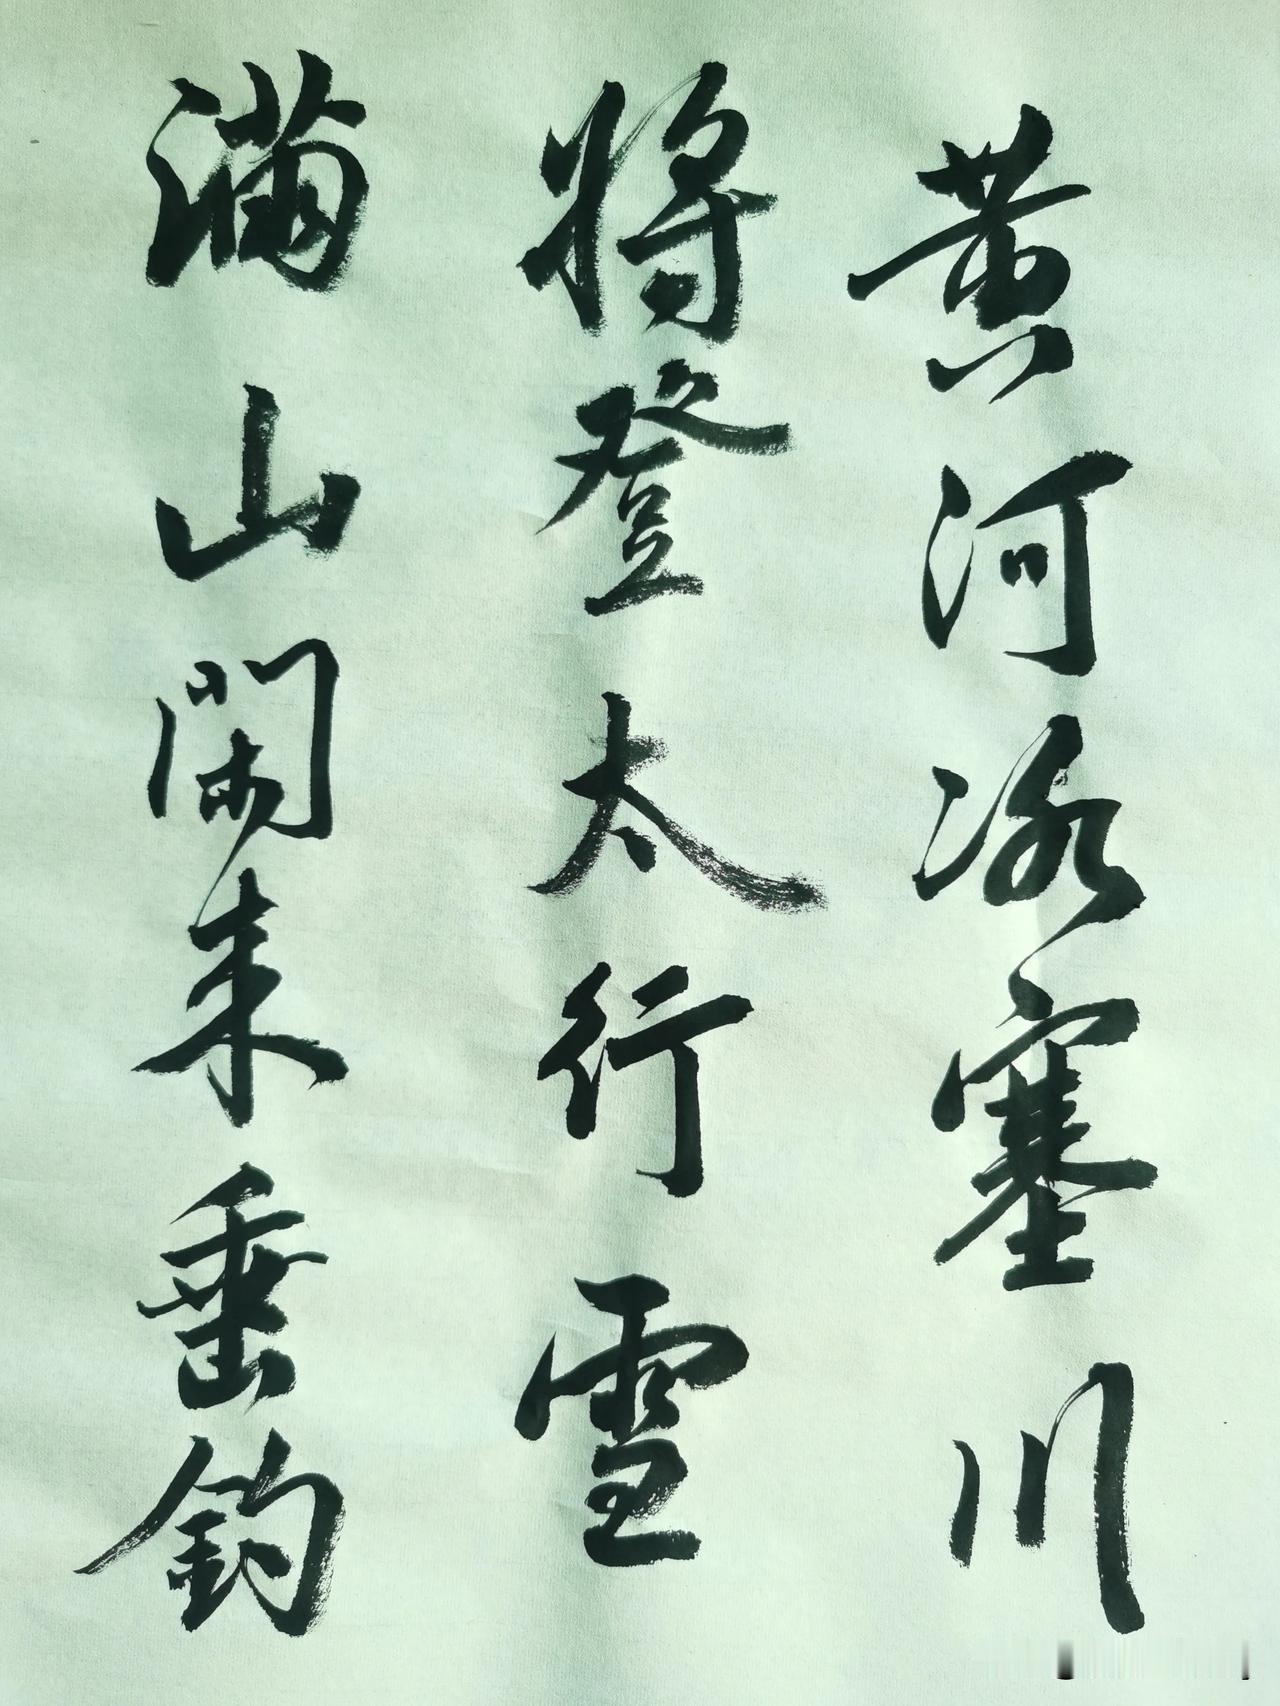 黄河冰塞川
将登太行雪
满山闲来垂钓